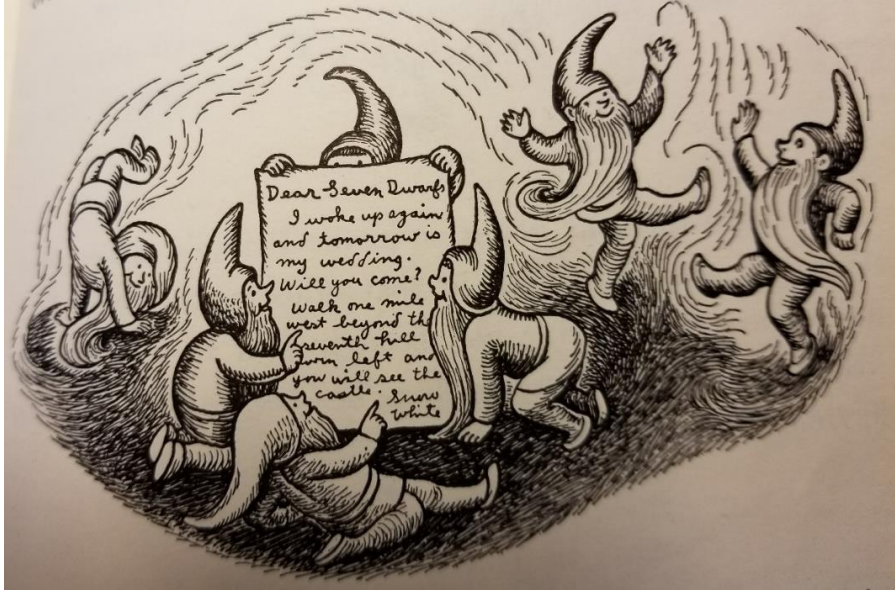 Dear Seven Dwarfs
I woke up again
and tomorrow is
my wedding.
Will you come?
Walk one mile
west beyond th
seventh hill
turn left and
you will see the
castle. Snow
White